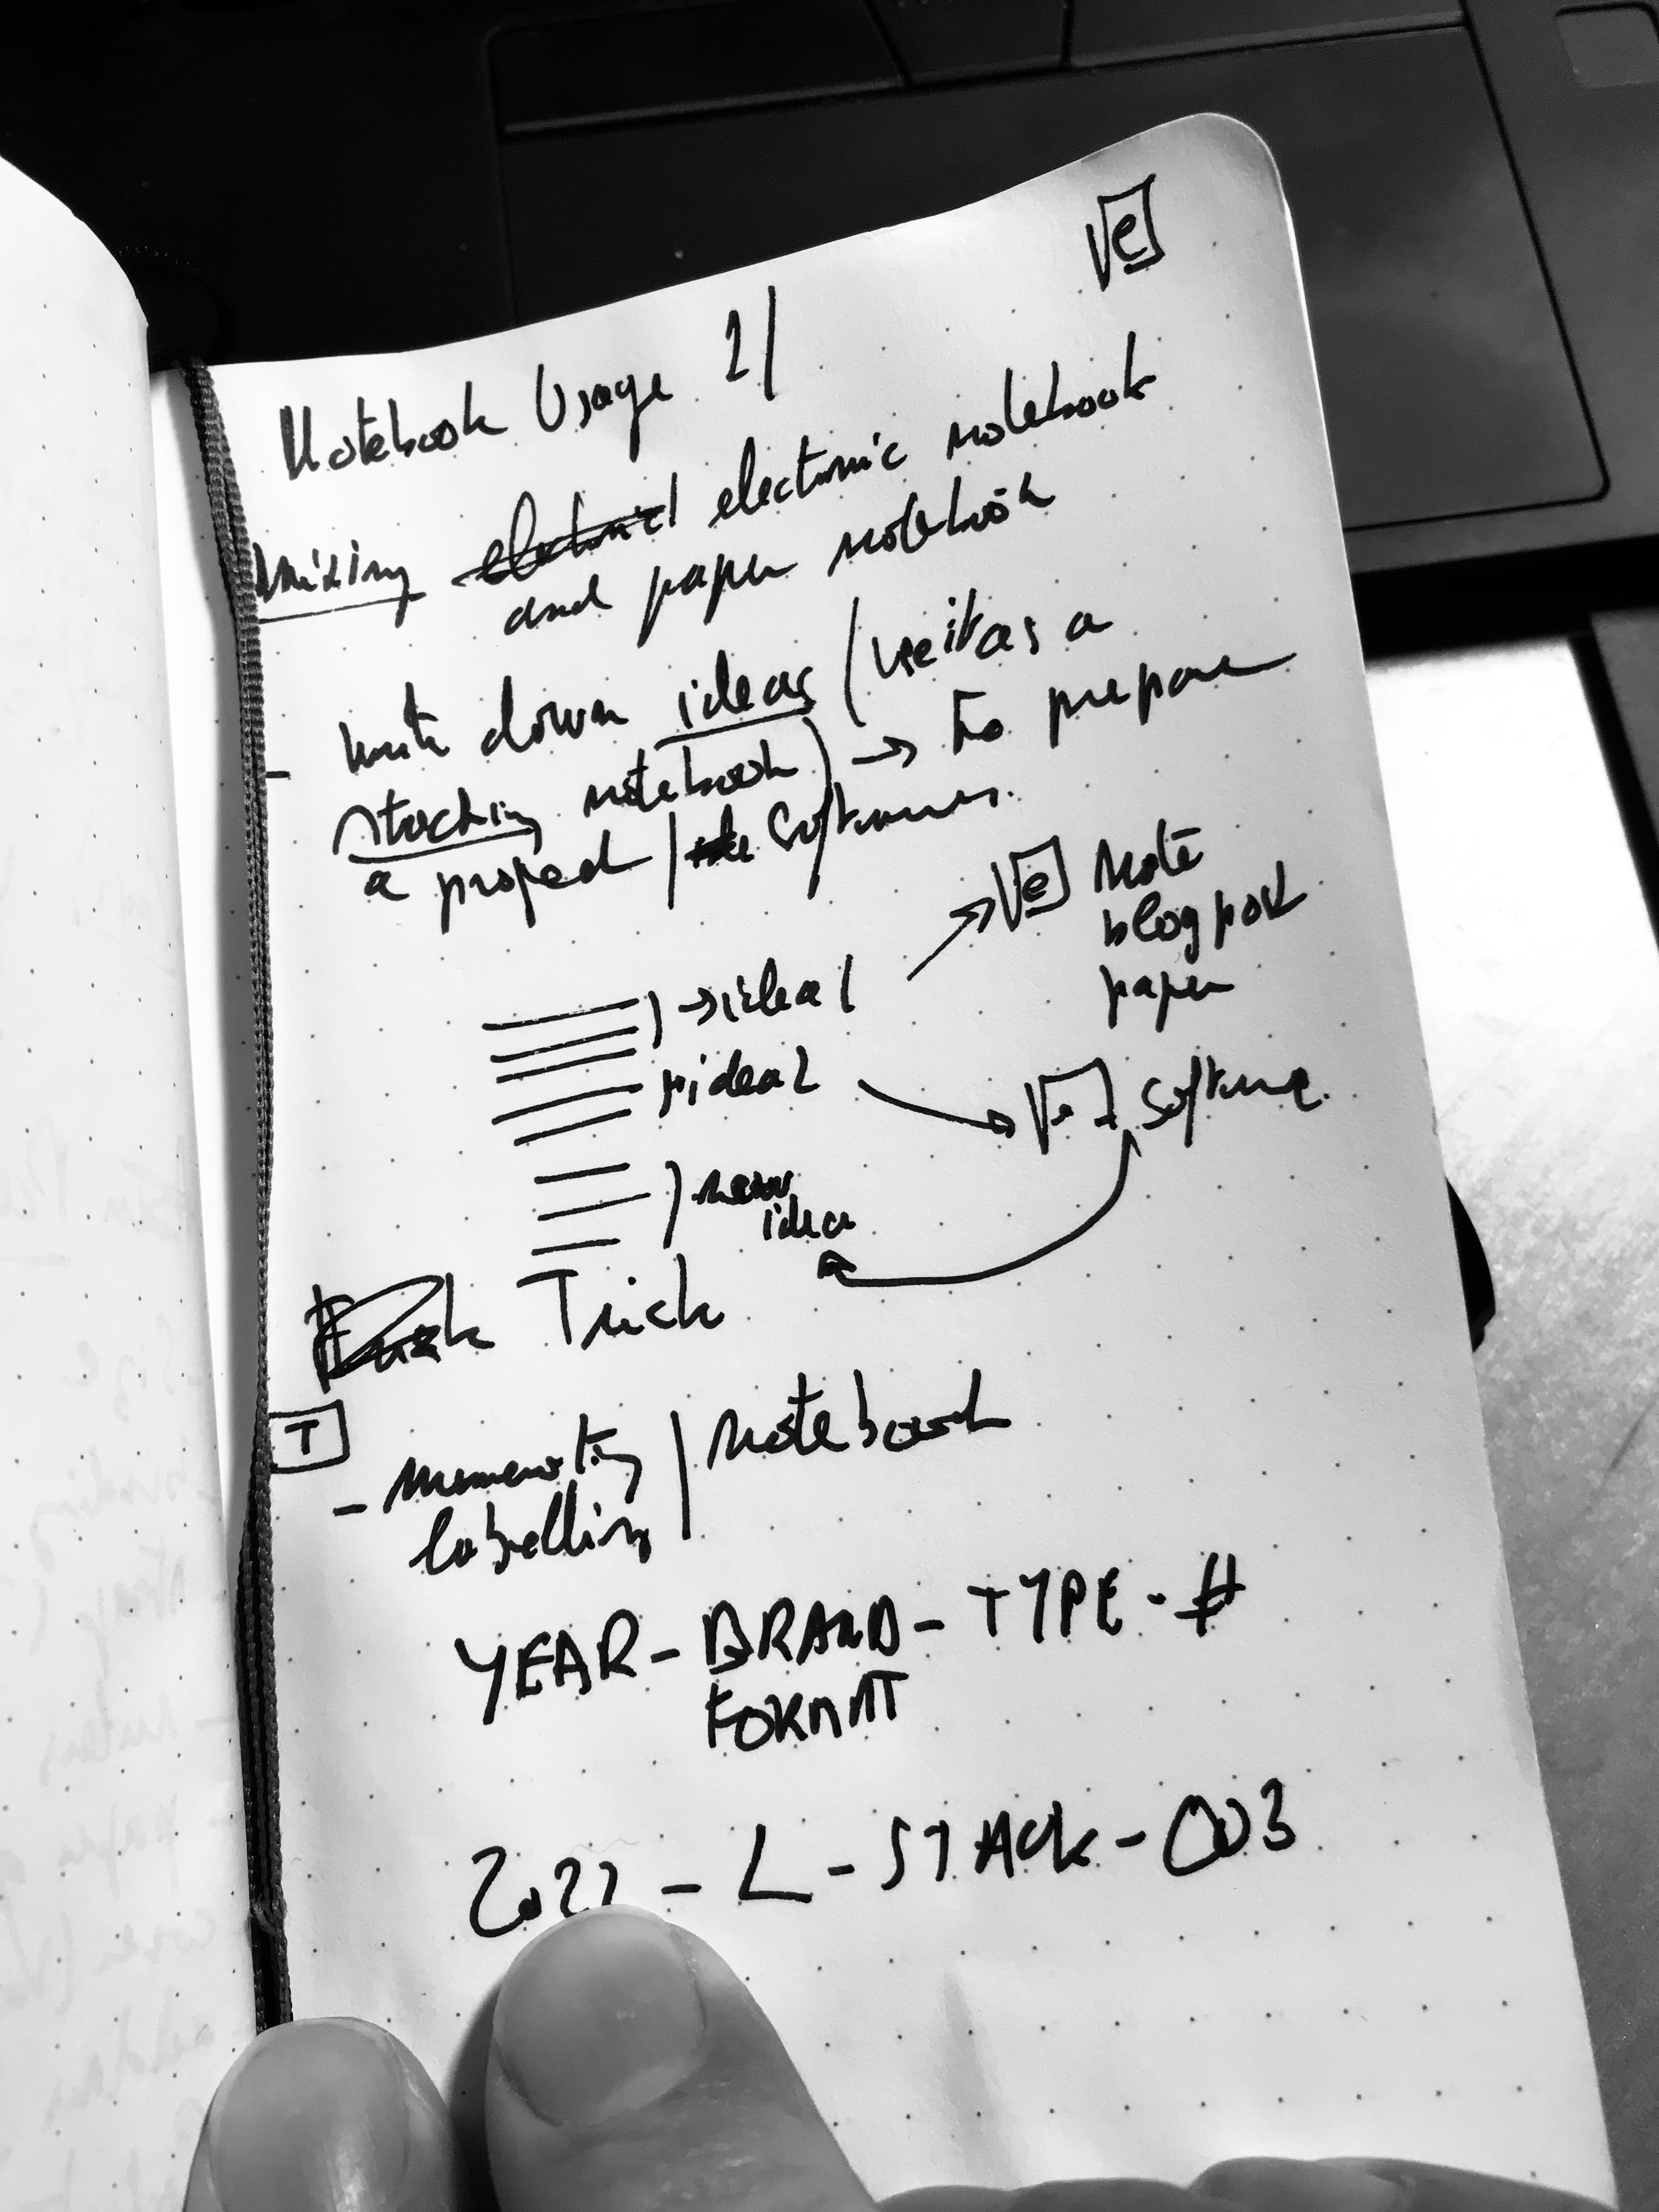 e
Notebook Usage 2/
Mixing electronic notebook
and paper notebook
- write down ideas (use it as a
stacking notebook) → to prepare
a project / software.
→ idea 1
e Note
blog post
paper
idea 2
e software
new
idea
Trick
T
- numeroting / notebook
labelling
YEAR - BRAND - TYPE - #
FORMAT
2022 - L - STACK - 003